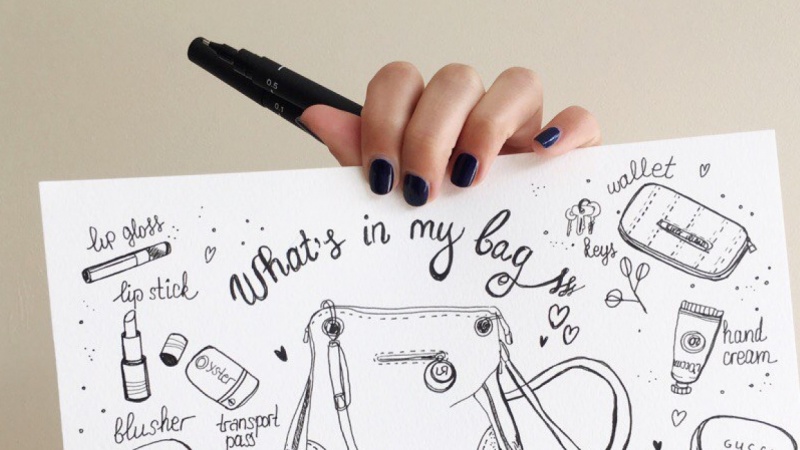 0.5
0.1
What's in my bag
lip gloss
lip stick
Oyster
blusher
transport
pass
wallet
keys
hand
cream
GUCCI